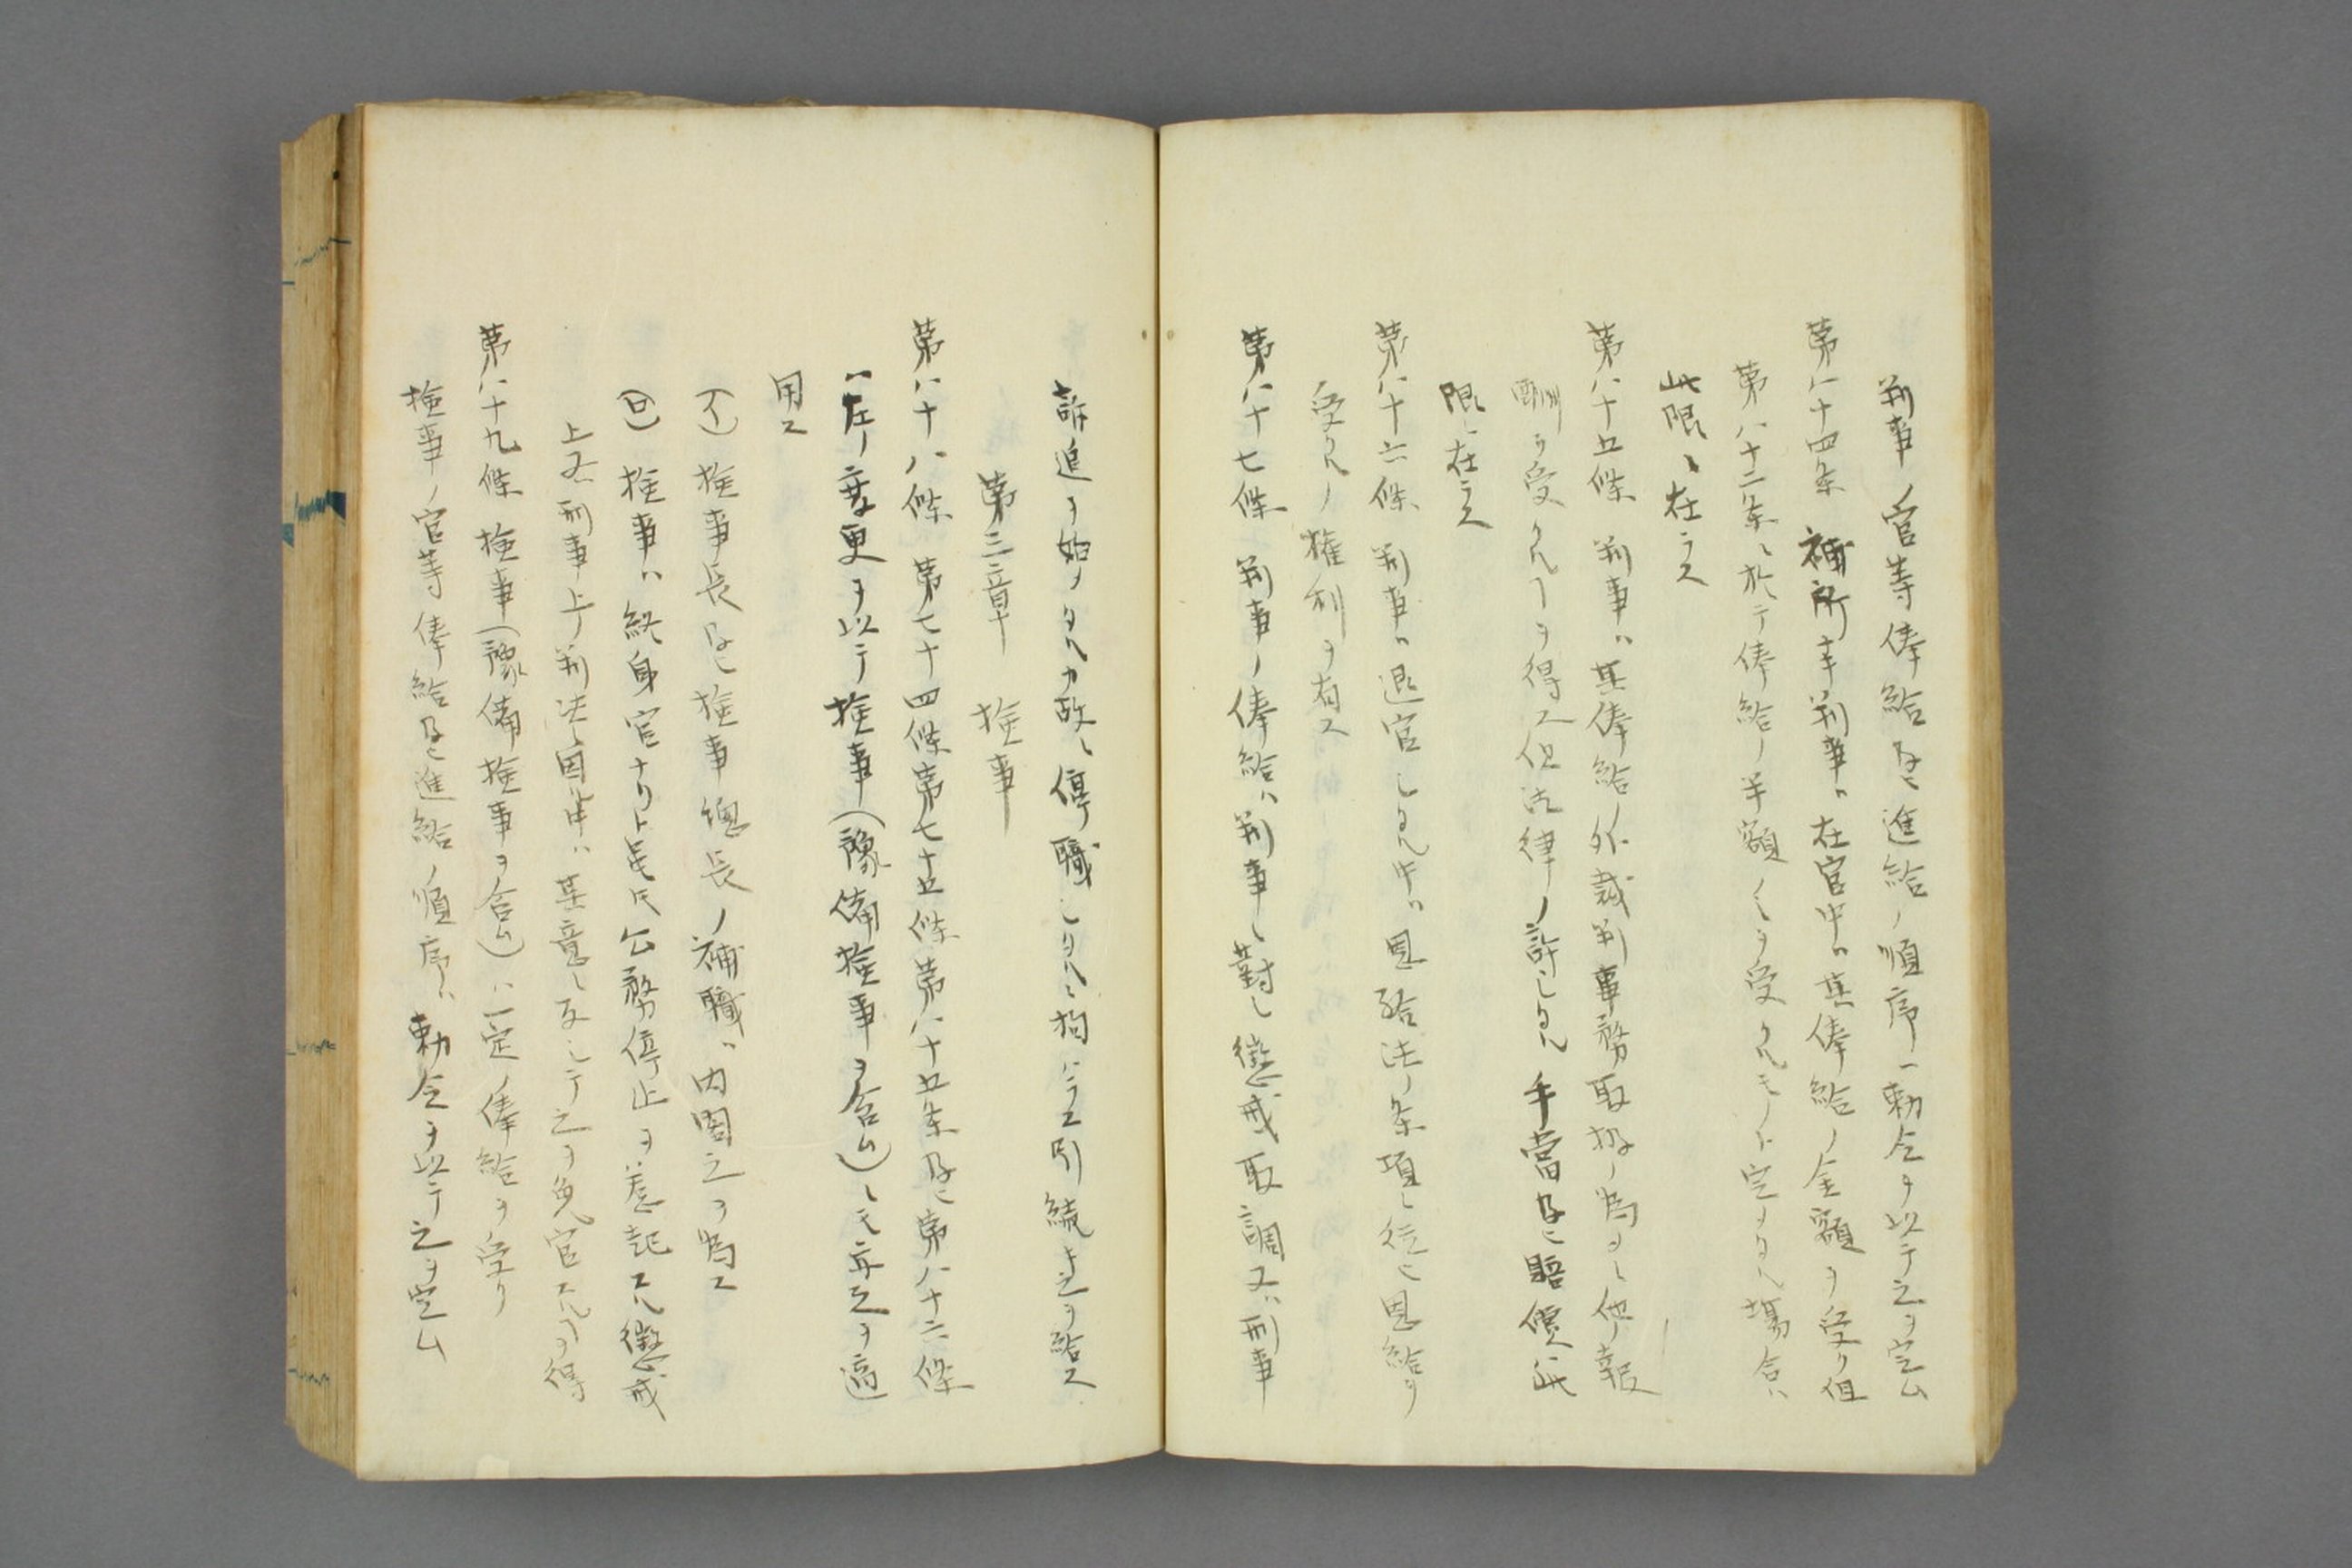 判事ノ官等俸給及ヒ進給ノ順序ハ勅令ヲ以テ之ヲ定ム
第八十四条 補所ノ判事ハ在官中ハ其俸給ノ全額ヲ受ク但
第八十二条ニ於テ俸給ノ半額ノミヲ受クルモノト定メタル塲合ハ
此限ニ在ラス
第八十五條 判事ハ其俸給ノ外裁判事務取扱ノ為メニ他ノ報
酬ヲ受クルヿヲ得ス但法律ノ許シタル手當及ヒ賠償ハ此
限ニ在ラス
第八十六條 判事ハ退官シタル中ハ恩給法ノ条項ニ従ヒ恩給ヲ
受クルノ権利ヲ有ス
第八十七條 判事ノ俸給ハ判事ニ對シ懲戒取調又ハ刑事
訴追ヲ始メタルカ故ニ停職シタルニ拘ハラス引續キ之ヲ給ス
第三章 検事
第八十八條 第七十四條第七十五條第八十五条及ヒ第八十六條
ハ左ノ変更ヲ以テ検事(豫備検事ヲ含ム)ニモ亦之ヲ適
用ス
(イ) 検事長及ヒ検事總長ノ補職ハ内閣之ヲ為ス
(ロ) 検事ハ終身官ナリト雖𪜈公務停止ヲ惹起スル懲戒
上又ハ刑事上ノ判決ニ因ル中ハ其意ニ反シテ之ヲ免官スルヿヲ得
第八十九條 検事(豫備検事ヲ含ム)ハ一定ノ俸給ヲ受ク
検事ノ官等俸給及ヒ進給ノ順序ハ勅令ヲ以テ之ヲ定ム